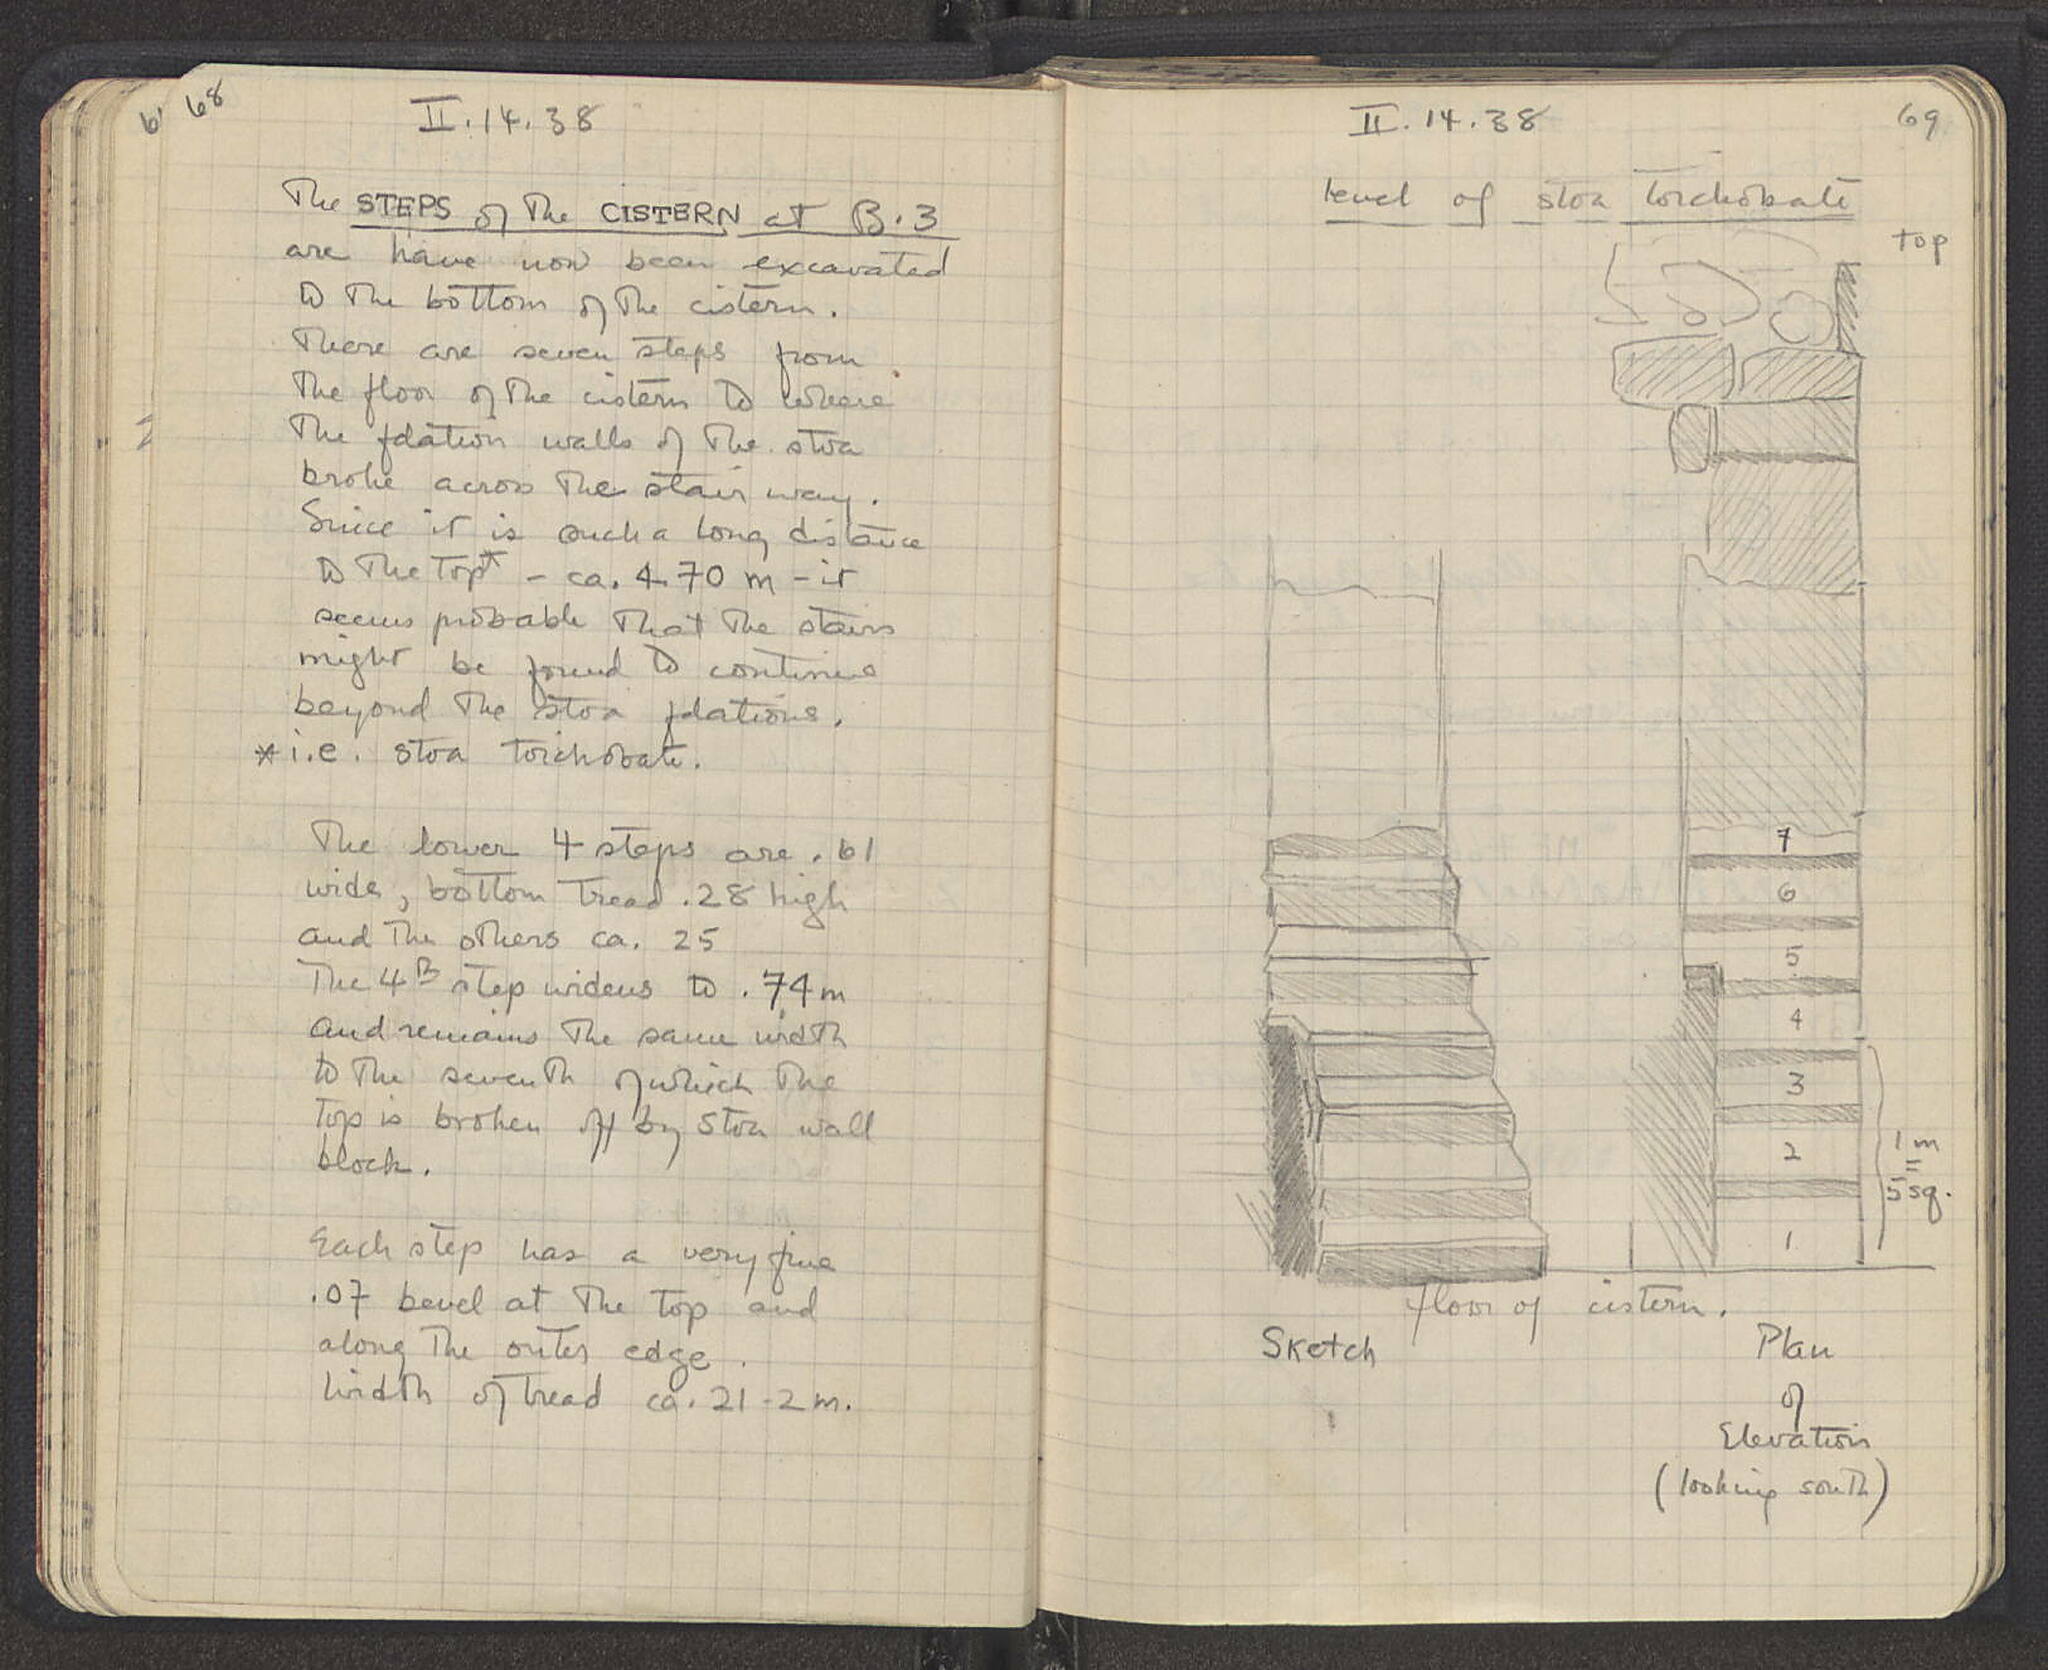 68
II.14.38
The STEPS of The CISTERN at B.3
are have now been excavated
to the bottom of the cistern.
There are seven steps from
the floor of the cistern to where
the fdation walls of the stoa
broke across the stair way.
Since it is such a long distance
to the top* - ca. 4.70 m - it
seems probable that the stairs
might be found to continue
beyond the stoa fdations.
* i.e. stoa toichobate.
The lower 4 steps are .61
wide, bottom tread .28 high
and the others ca. 25
The 4th step widens to .74 m
and remains the same width
to the seventh of which the
top is broken off by stoa wall
block.
Each step has a very fine
.07 bevel at the top and
along the outer edge.
Width of tread ca. 21-2 m.
II.14.38
69
level of stoa toichobate
top
7
6
5
4
3
2
1
1 m
=
5 sq.
floor of cistern.
Sketch
Plan
of
Elevation
(looking south)